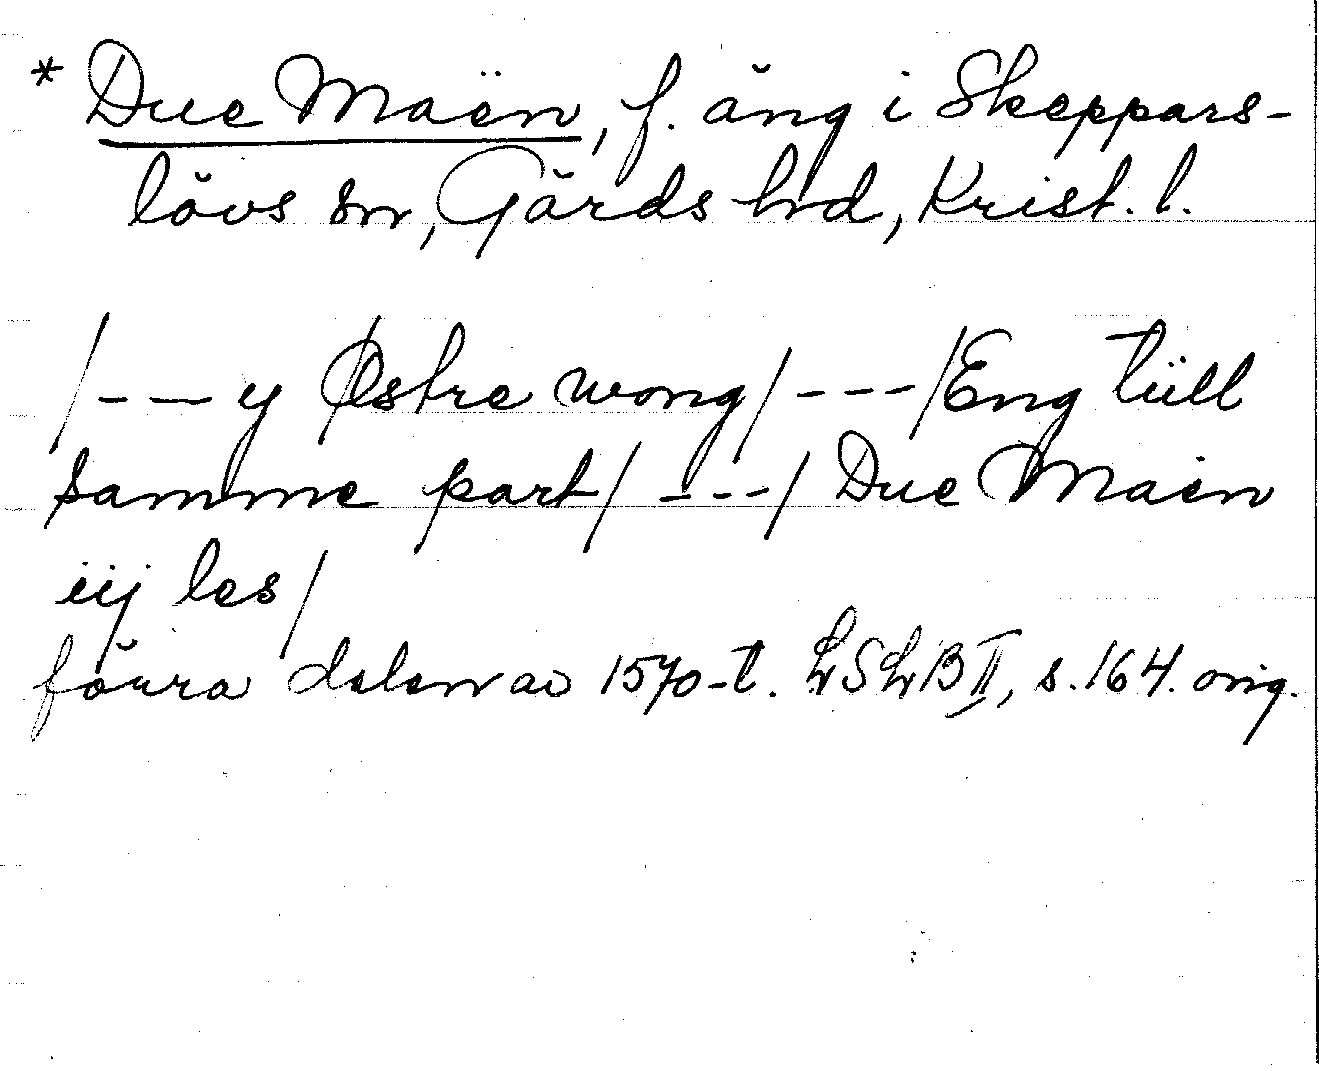 * Due Maën, f. äng i Skeppars-
lövs sn, Gärds hd, Krist. l.
/---y Østre wong/---/Eng tüll
samme part/---/Due Maen
iij les/
förra delen av 1570-t. LSLB II, s. 164. orig.